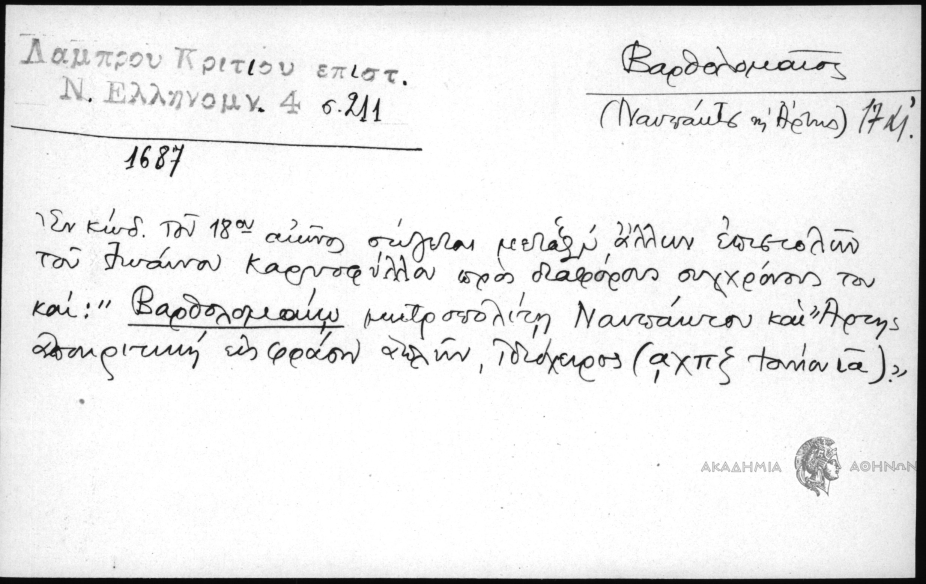 Λαμπρου Κριτιου επιστ.
Ν. Ελληνομν. 4 σ. 211
1687
Βαρθολομαῖος
(Ναυπάκτου κ Ἄρτης) 17 αἰ.
"Ἐν κώδ. τοῦ 18ου αἰῶνος σώζεται μεταξύ ἄλλων ἐπιστολῶν
τοῦ Ἰωάννου Καρυοφύλλου πρός διαφόρους συγχρόνους του
καί: " Βαρθολομαίῳ μητροπολίτῃ Ναυπάκτου καί Ἄρτης
εἰς φράσιν ἁπλῆν, Ἰδιόχειρος (αχπζ ια)."
ΑΚΑΔΗΜΙΑ ΑΘΗΝΩΝ